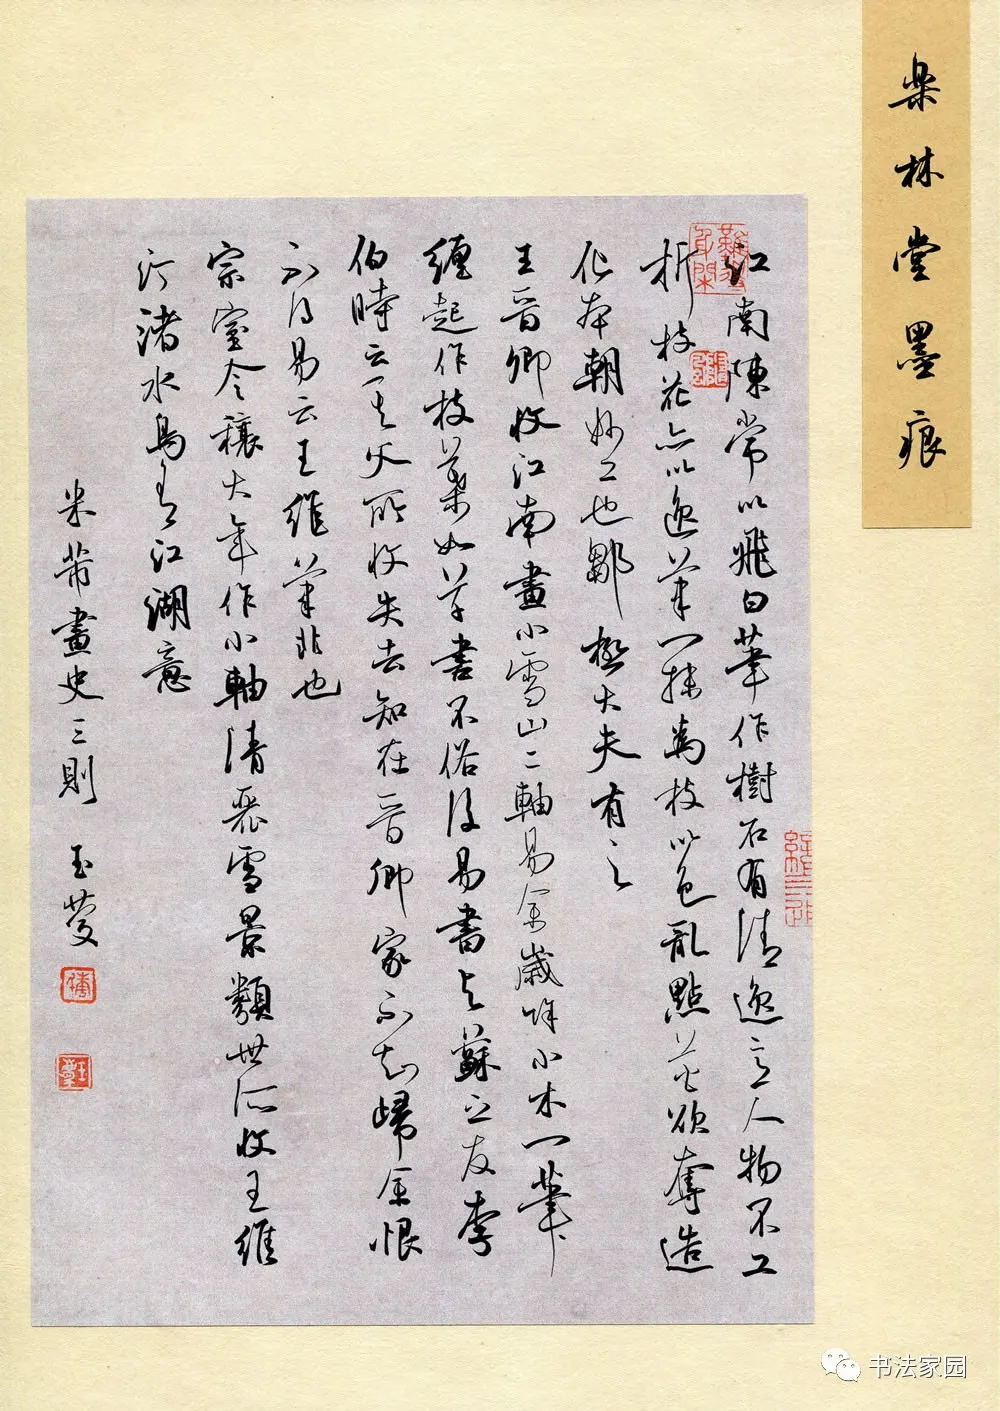 樂林堂墨痕
江南陳常以飛白筆作樹石有清逸意人物不工
折枝花亦以逸筆一抹為枝以色亂點花欲奪造
化本朝妙工也鄒極大夫有之
王晉卿收江南畫小雪山二軸易余歲餘小木一筆
纏起作枝葉如草書不俗後易書與蘇之友李
伯時云其父所收失去知在晉卿家不知歸余恨
不得易云王維筆非也
宗室令穰大年作小軸清麗雪景類世所收王維
汀渚水鳥有江湖意
米芾畫史三則 玉
书法家园